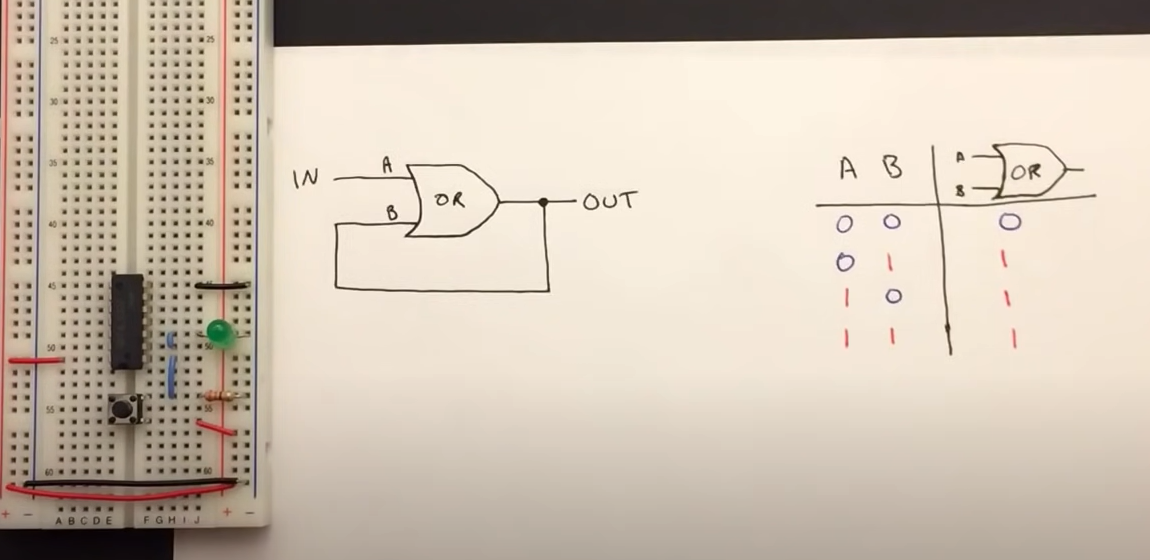 25 25
30 30
35 35
40 40
45
50 50
55 55
60 60
+ - A B C D E F G H I J + -
IN A OR OUT
B
A B A OR
B
0 0 0
0 1 1
1 0 1
1 1 1